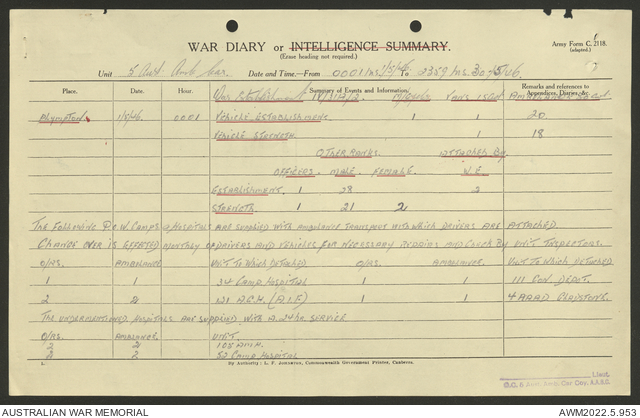 WAR DIARY or INTELLIGENCE SUMMARY.
(Erase heading not required.)
Army Form C. 2118.
(adapted.)
Unit 5 Aust Amb Car. Date and Time—From 0001 hrs 1/5/46 To 2359 hrs 30/5/46.
Place. Date. Hour. Summary of Events and Information. References to Appendices, Diaries, &c.
War Establishment
Plympton. 1/5/46 0001 Vehicle Establishment. 1 1 20
Vehicle Strength 1 18
Other Ranks. Attached By
Officers. Male. Female. W.E.
Establishment. 1 28 2
Strength 1 21 2
The Following P.O.W. Camps & Hospitals are supplied with Ambulance Transport with which drivers are attached
Change over is effected monthly of drivers and vehicles for necessary repairs and cover by Unit Inspections.
O/Rs. Ambulance Unit To Which Detached O/Rs. Ambulance. Unit To Which Detached
1 1 34 Camp Hospital 1 1 111 Con. Depot.
2 2 121 A.G.H. (A.I.F) 1 1 4 AAAD Gladstone.
The undermentioned Hospitals are supplied with a 24 hr. service
O/Rs. Ambulance. Unit.
2 2 105 A.M.H.
2 2 52 Camp Hospital
1. By Authority: L. F. Johnston, Commonwealth Government Printer, Canberra.
Lieut.
O.C. 5 Aust. Amb. Car Coy. A.A.S.C.
AUSTRALIAN WAR MEMORIAL AWM2022.5.953